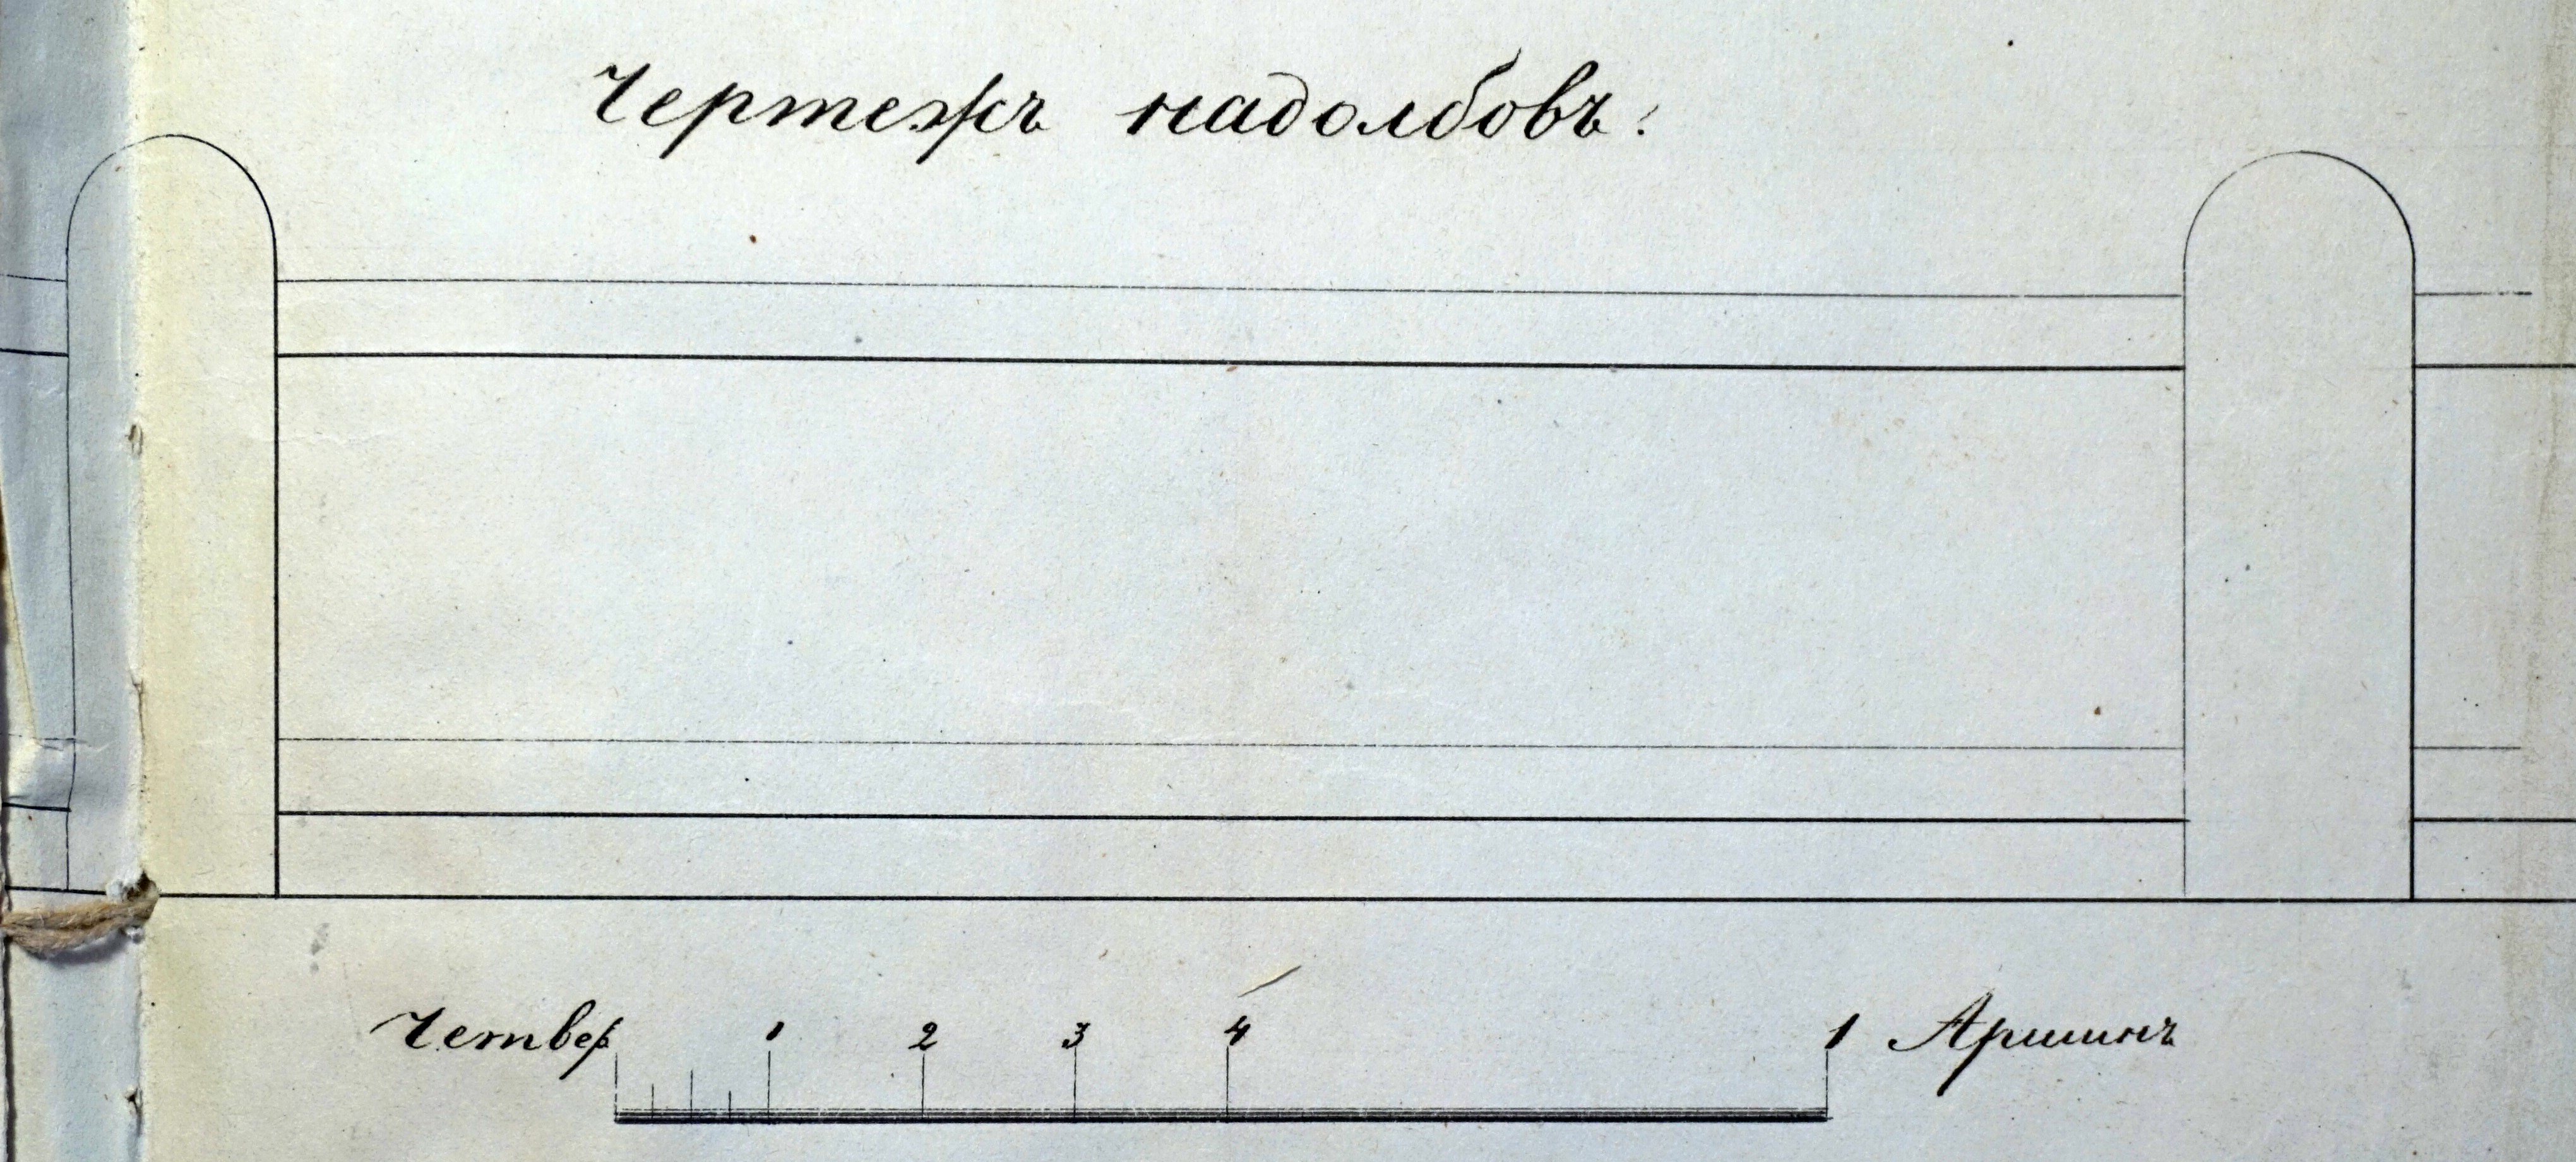 Чертежъ надолбовъ.
Четвер. 1 2 3 4 1 Аршинъ